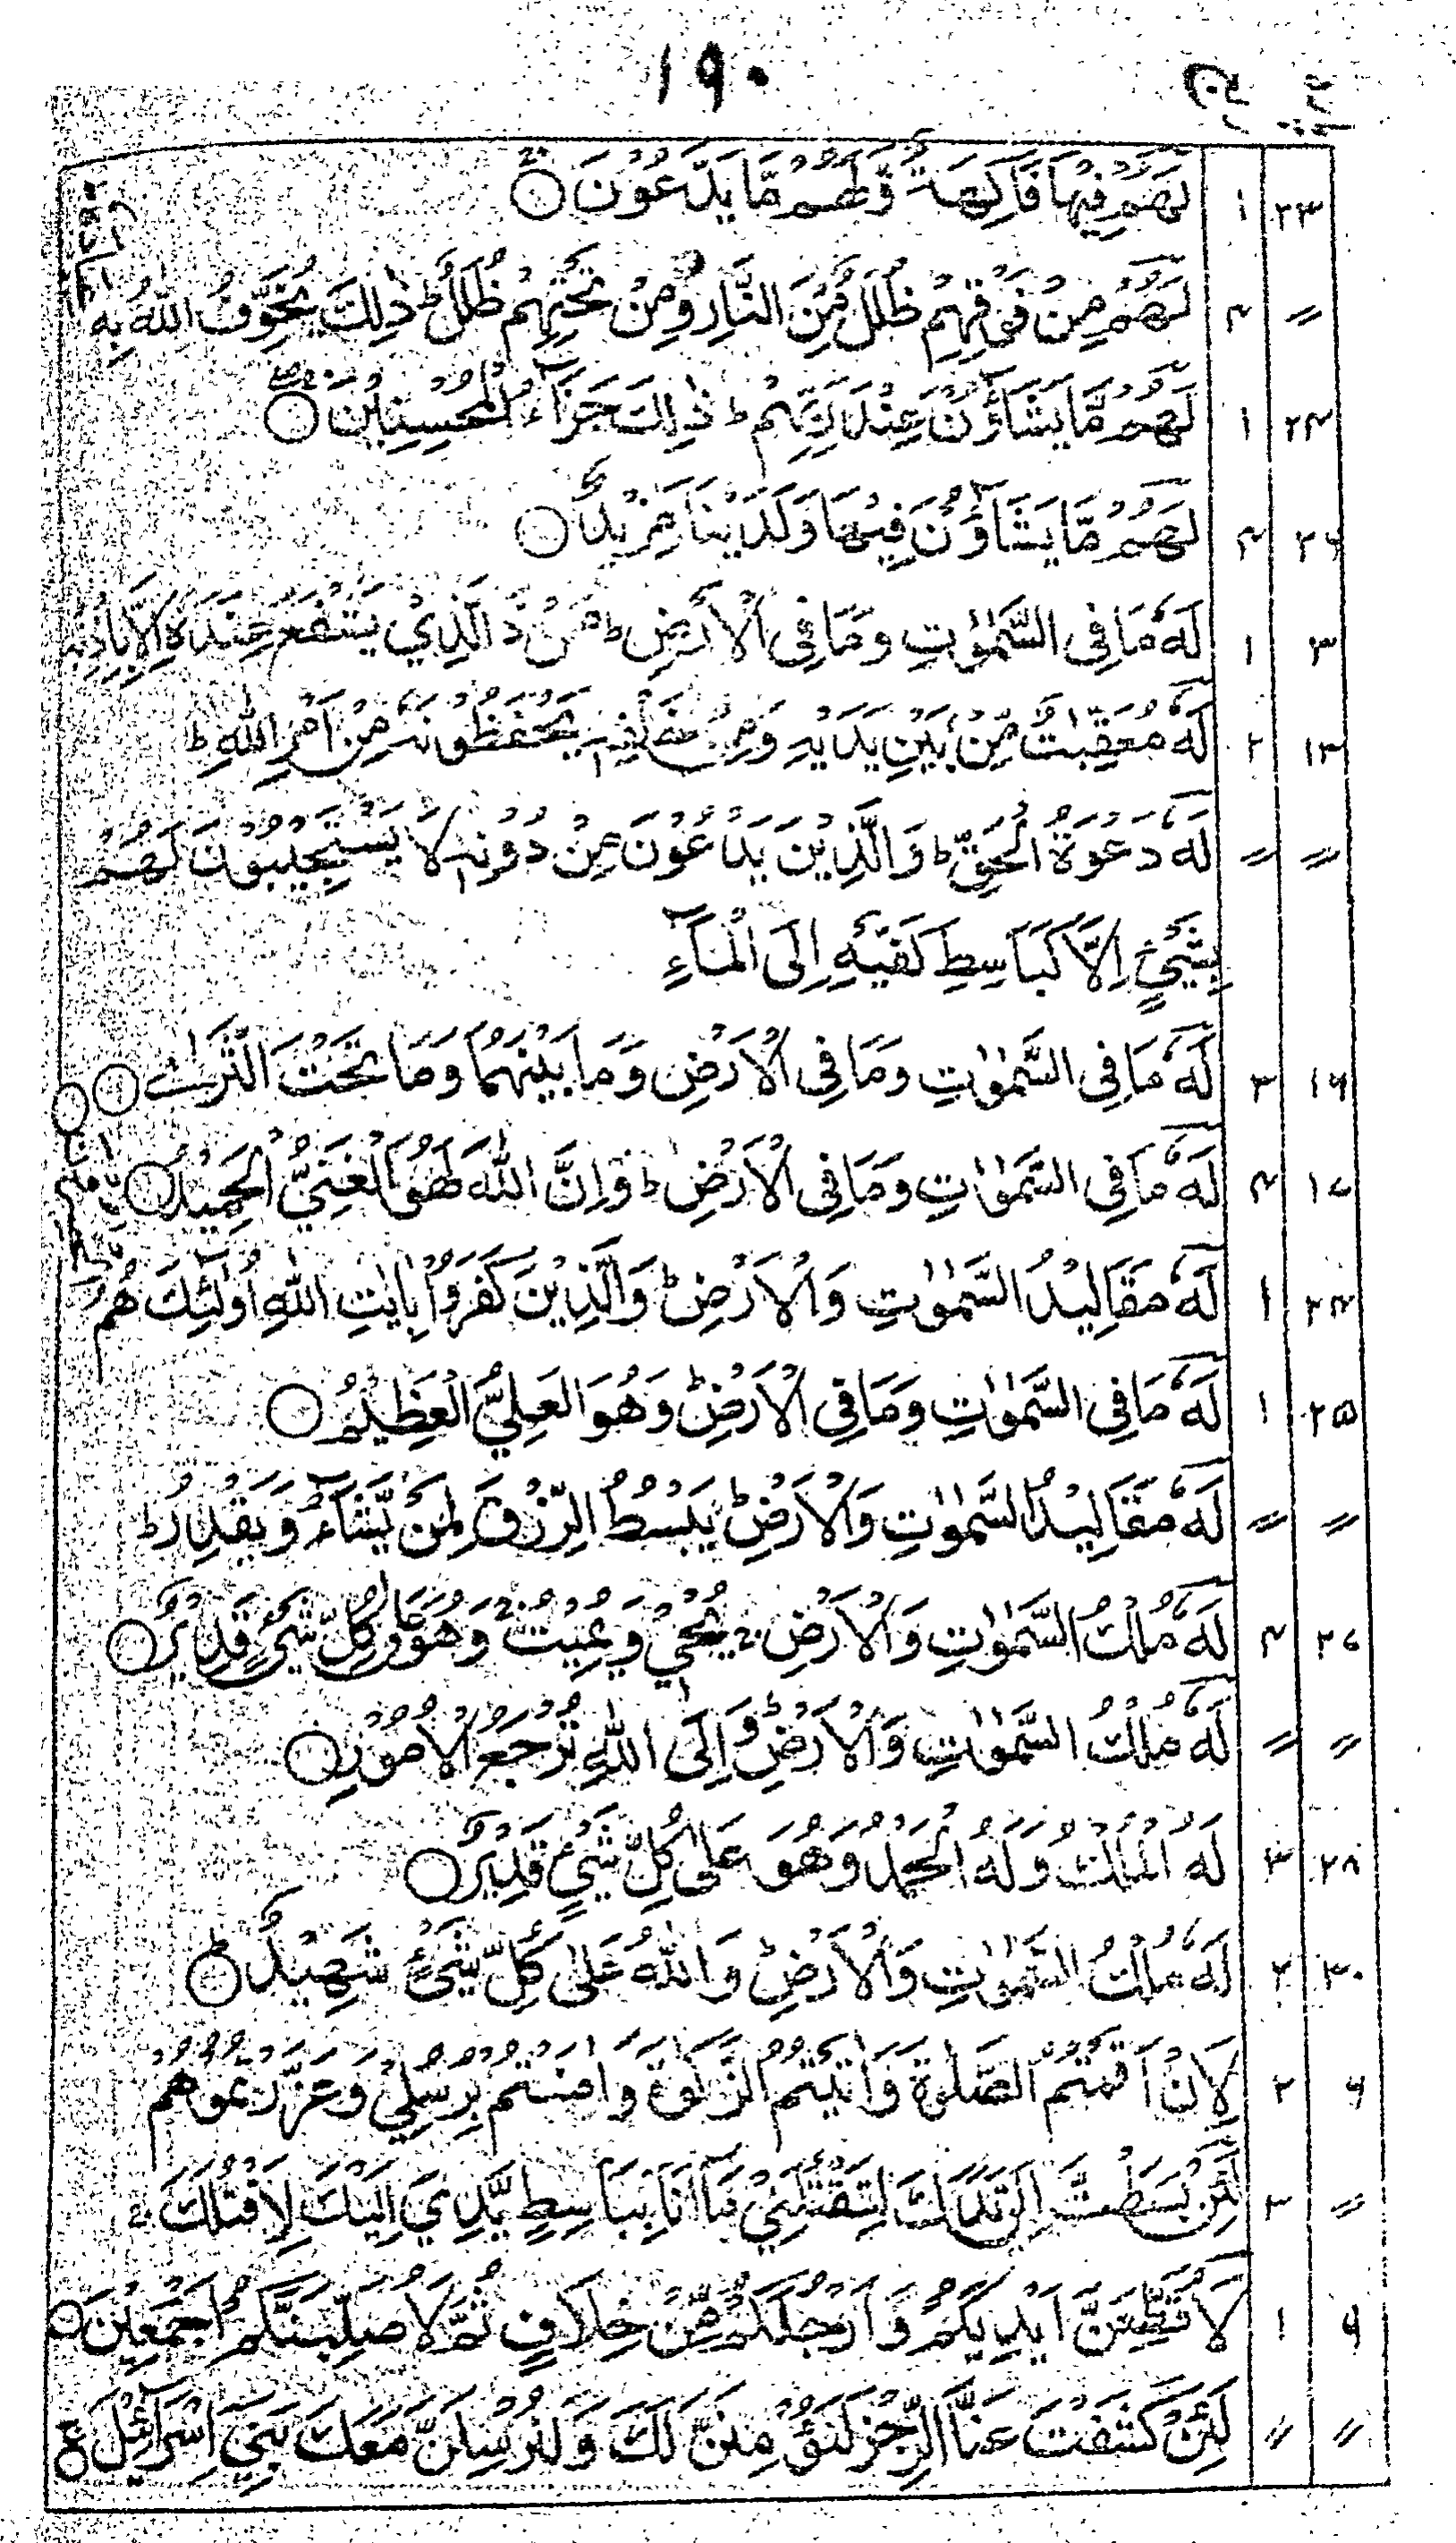 ۱۹۰
۲۳ ۱ لَهُمْ فِيْهَا فَاكِهَةٌ وَّلَهُمْ مَّا يَدَّعُوْنَ
〃 ۴ لَهُمْ مِّنْ فَوْقِهِمْ ظُلَلٌ مِّنَ النَّارِ وَمِنْ تَحْتِهِمْ ظُلَلٌ ط ذٰلِكَ يُخَوِّفُ اللّٰهُ بِهٖ
۲۴ ۱ لَهُمْ مَّا يَشَآؤُنَ عِنْدَ رَبِّهِمْ ط ذٰلِكَ جَزَآءُ الْمُحْسِنِيْنَ
۲۶ ۴ لَهُمْ مَّا يَشَآؤُنَ فِيْهَا وَلَدَيْنَا مَزِيْدٌ
۳ ۱ لَهٗ مَا فِى السَّمٰوٰتِ وَمَا فِى الْاَرْضِ ط مَنْ ذَا الَّذِيْ يَشْفَعُ عِنْدَهٗ اِلَّا بِاِذْنِهٖ
۱۳ ۲ لَهٗ مُعَقِّبٰتٌ مِّنْ بَيْنِ يَدَيْهِ وَمِنْ خَلْفِهٖ يَحْفَظُوْنَهٗ مِنْ اَمْرِ اللّٰهِ ط
〃 〃 لَهٗ دَعْوَةُ الْحَقِّ ط وَالَّذِيْنَ يَدْعُوْنَ مِنْ دُوْنِهٖ لَا يَسْتَجِيْبُوْنَ لَهُمْ
بِشَيْءٍ اِلَّا كَبَاسِطِ كَفَّيْهِ اِلَى الْمَآءِ
۱۶ ۳ لَهٗ مَا فِى السَّمٰوٰتِ وَمَا فِى الْاَرْضِ وَمَا بَيْنَهُمَا وَمَا تَحْتَ الثَّرٰى
۱۷ ۴ لَهٗ مَا فِى السَّمٰوٰتِ وَمَا فِى الْاَرْضِ ط وَاِنَّ اللّٰهَ لَهُوَ الْغَنِيُّ الْحَمِيْدُ
۲۴ ۱ لَهٗ مَقَالِيْدُ السَّمٰوٰتِ وَالْاَرْضِ ط وَالَّذِيْنَ كَفَرُوْا بِاٰيٰتِ اللّٰهِ اُولٰٓئِكَ هُمُ
۲۵ ۱ لَهٗ مَا فِى السَّمٰوٰتِ وَمَا فِى الْاَرْضِ ط وَهُوَ الْعَلِيُّ الْعَظِيْمُ
〃 〃 لَهٗ مَقَالِيْدُ السَّمٰوٰتِ وَالْاَرْضِ ط يَبْسُطُ الرِّزْقَ لِمَنْ يَّشَآءُ وَيَقْدِرُ ط
۲۷ ۴ لَهٗ مُلْكُ السَّمٰوٰتِ وَالْاَرْضِ ج يُحْيٖ وَيُمِيْتُ ج وَهُوَ عَلٰى كُلِّ شَيْءٍ قَدِيْرٌ
〃 〃 لَهٗ مُلْكُ السَّمٰوٰتِ وَالْاَرْضِ ط وَاِلَى اللّٰهِ تُرْجَعُ الْاُمُوْرُ
۲۸ ۳ لَهُ الْمُلْكُ وَلَهُ الْحَمْدُ وَهُوَ عَلٰى كُلِّ شَيْءٍ قَدِيْرٌ
۳۰ ۲ لَهٗ مُلْكُ السَّمٰوٰتِ وَالْاَرْضِ ط وَاللّٰهُ عَلٰى كُلِّ شَيْءٍ شَهِيْدٌ ط
۶ ۲ لَاِنْ اَقَمْتُمُ الصَّلٰوةَ وَاٰتَيْتُمُ الزَّكٰوةَ وَاٰمَنْتُمْ بِرُسُلِيْ وَعَزَّرْتُمُوْهُمْ
〃 ۳ لَئِنْ بَسَطْتَّ اِلَيَّ يَدَكَ لِتَقْتُلَنِيْ مَآ اَنَا بِبَاسِطٍ يَّدِيَ اِلَيْكَ لِاَقْتُلَكَ ج
۹ ۱ لَاُقَطِّعَنَّ اَيْدِيَكُمْ وَاَرْجُلَكُمْ مِّنْ خِلَافٍ ثُمَّ لَاُصَلِّبَنَّكُمْ اَجْمَعِيْنَ
〃 〃 لَئِنْ كَشَفْتَ عَنَّا الرِّجْزَ لَنُؤْمِنَنَّ لَكَ وَلَنُرْسِلَنَّ مَعَكَ بَنِيْٓ اِسْرَآئِيْلَ